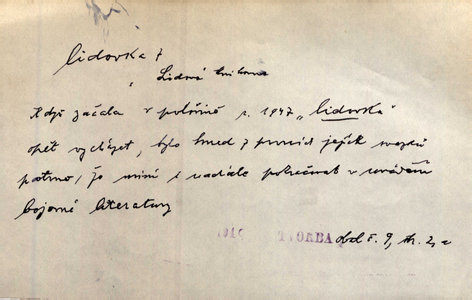 lidovka 7
Lidová knihovna
Když začala v polovině r. 1947 „lidovka"
opět vycházet, bylo hned z prvních jejích svazků
patrno, že míní i nadále pokračovat v uvádění
bojovné literatury
TVORBA od č. 9, str. 2